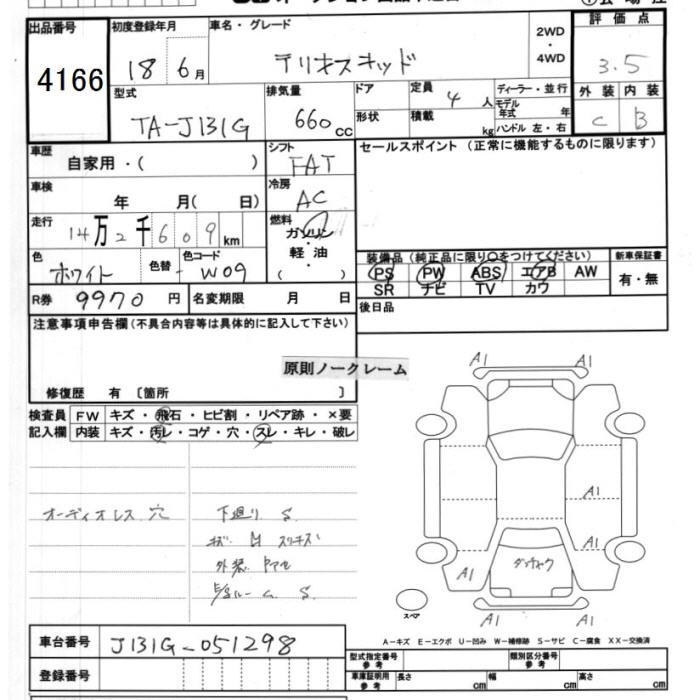 出品番号 初度登録年月 車名・グレード 2WD・4WD 評価点
4166 18 6月 テリオスキッド 3.5
型式 排気量 ドア 定員 4人 ディーラー・並行 外装 内装
TA-J131G 660cc 形状 積載 kg モデル年式 年 C B
ハンドル 左・右
車歴 自家用・( ) シフト FAT セールスポイント (正常に機能するものに限ります)
車検 年 月( 日) 冷房 AC
走行 14万2千609km 燃料 ガソリン・軽油 ( )
色 ホワイト 色替 - 色コード W09 装備品(純正品に限り○をつけてください) 新車保証書
PS PW ABS エアB AW 有・無
SR ナビ TV カワ
R券 9970円 名変期限 月 日 後日品
注意事項申告欄(不具合内容等は具体的に記入して下さい)
原則ノークレーム
修復歴 有 〔箇所 〕
検査員 FW キズ・飛石・ヒビ割・リペア跡・×要
記入欄 内装 キズ・汚レ・コゲ・穴・スレ・キレ・破レ
オーディオレス 穴 下廻り S
外装
A1 A1
A1
A1 A1
A1 A1
スペア
A-キズ E-エクボ U-凹み W-補修跡 S-サビ C-腐食 XX-交換済
車台番号 J131G-051298
登録番号
型式指定番号 参考 類別区分番号 参考
車庫証明用 参考 長さ cm 幅 cm 高さ cm